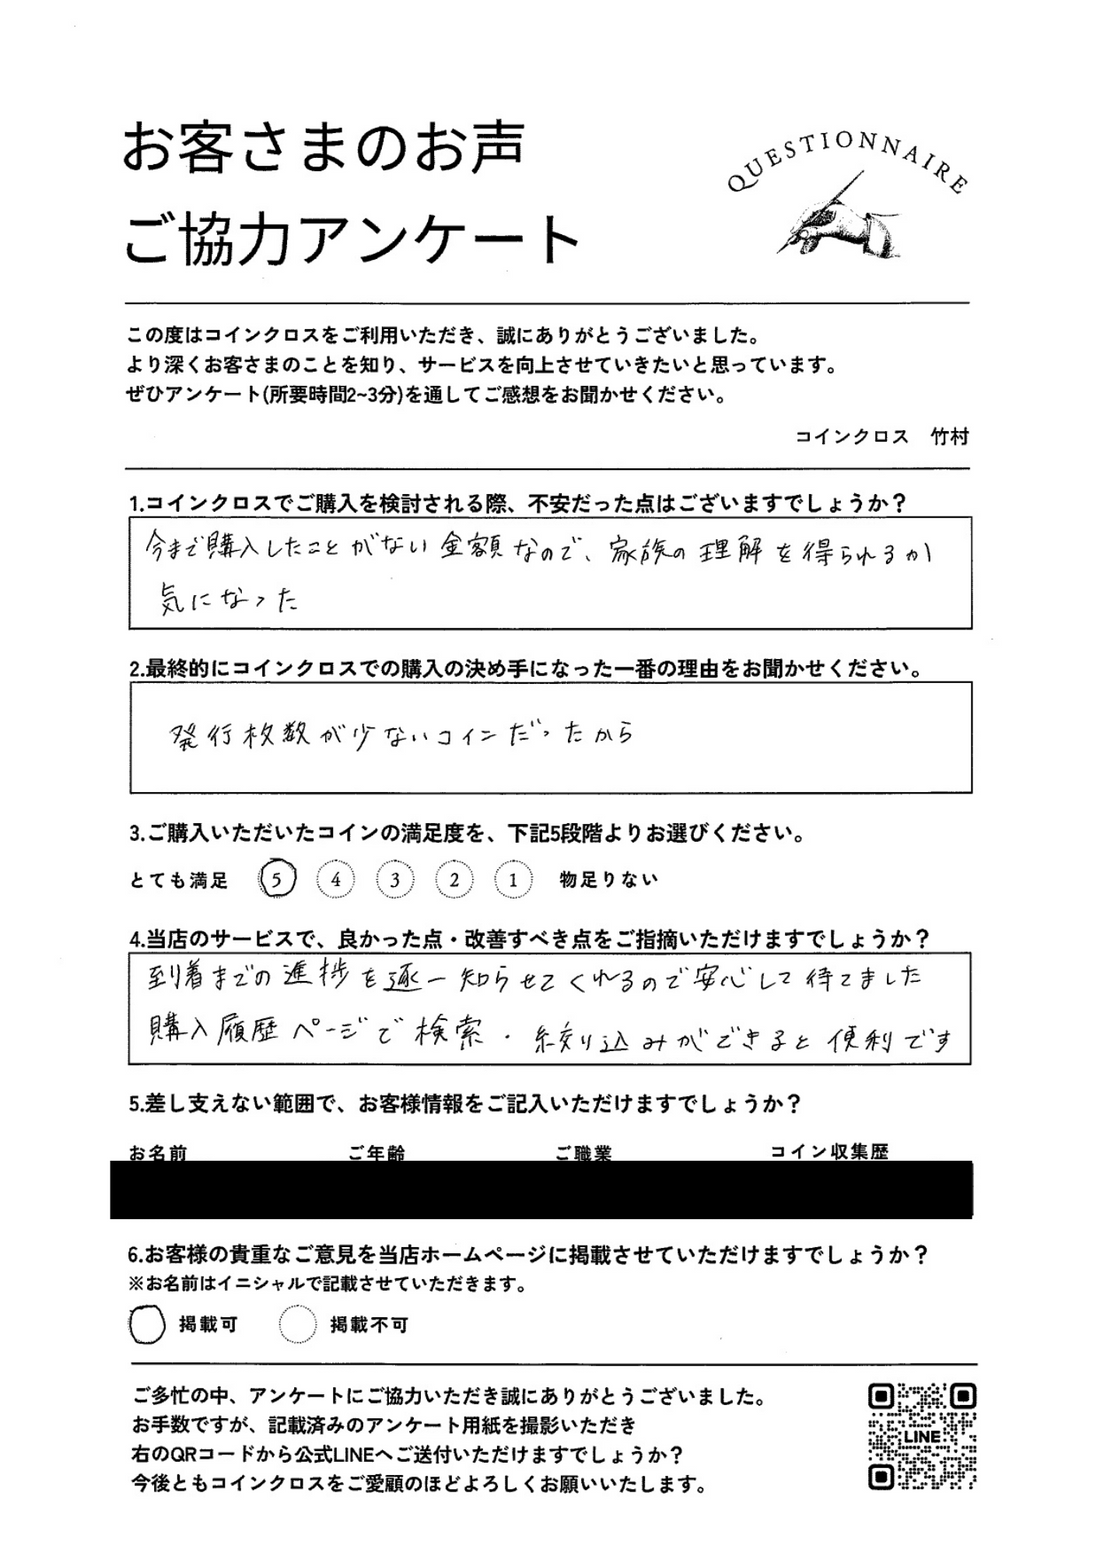 お客さまのお声
ご協力アンケート
QUESTIONNAIRE
この度はコインクロスをご利用いただき、誠にありがとうございました。
より深くお客さまのことを知り、サービスを向上させていきたいと思っています。
ぜひアンケート(所要時間2~3分)を通してご感想をお聞かせください。
コインクロス 竹村
1.コインクロスでご購入を検討される際、不安だった点はございますでしょうか？
今まで購入したことがない金額なので、家族の理解を得られるか
気になった
2.最終的にコインクロスでの購入の決め手になった一番の理由をお聞かせください。
発行枚数が少ないコインだったから
3.ご購入いただいたコインの満足度を、下記5段階よりお選びください。
とても満足 5 4 3 2 1 物足りない
4.当店のサービスで、良かった点・改善すべき点をご指摘いただけますでしょうか？
到着までの進捗を逐一知らせてくれるので安心して待てました
購入履歴ページで検索・絞り込みができると便利です
5.差し支えない範囲で、お客様情報をご記入いただけますでしょうか？
お名前 ご年齢 ご職業 コイン収集歴
6.お客様の貴重なご意見を当店ホームページに掲載させていただけますでしょうか？
※お名前はイニシャルで記載させていただきます。
掲載可 掲載不可
ご多忙の中、アンケートにご協力いただき誠にありがとうございました。
お手数ですが、記載済みのアンケート用紙を撮影いただき
右のQRコードから公式LINEへご送付いただけますでしょうか？
今後ともコインクロスをご愛顧のほどよろしくお願いいたします。
LINE